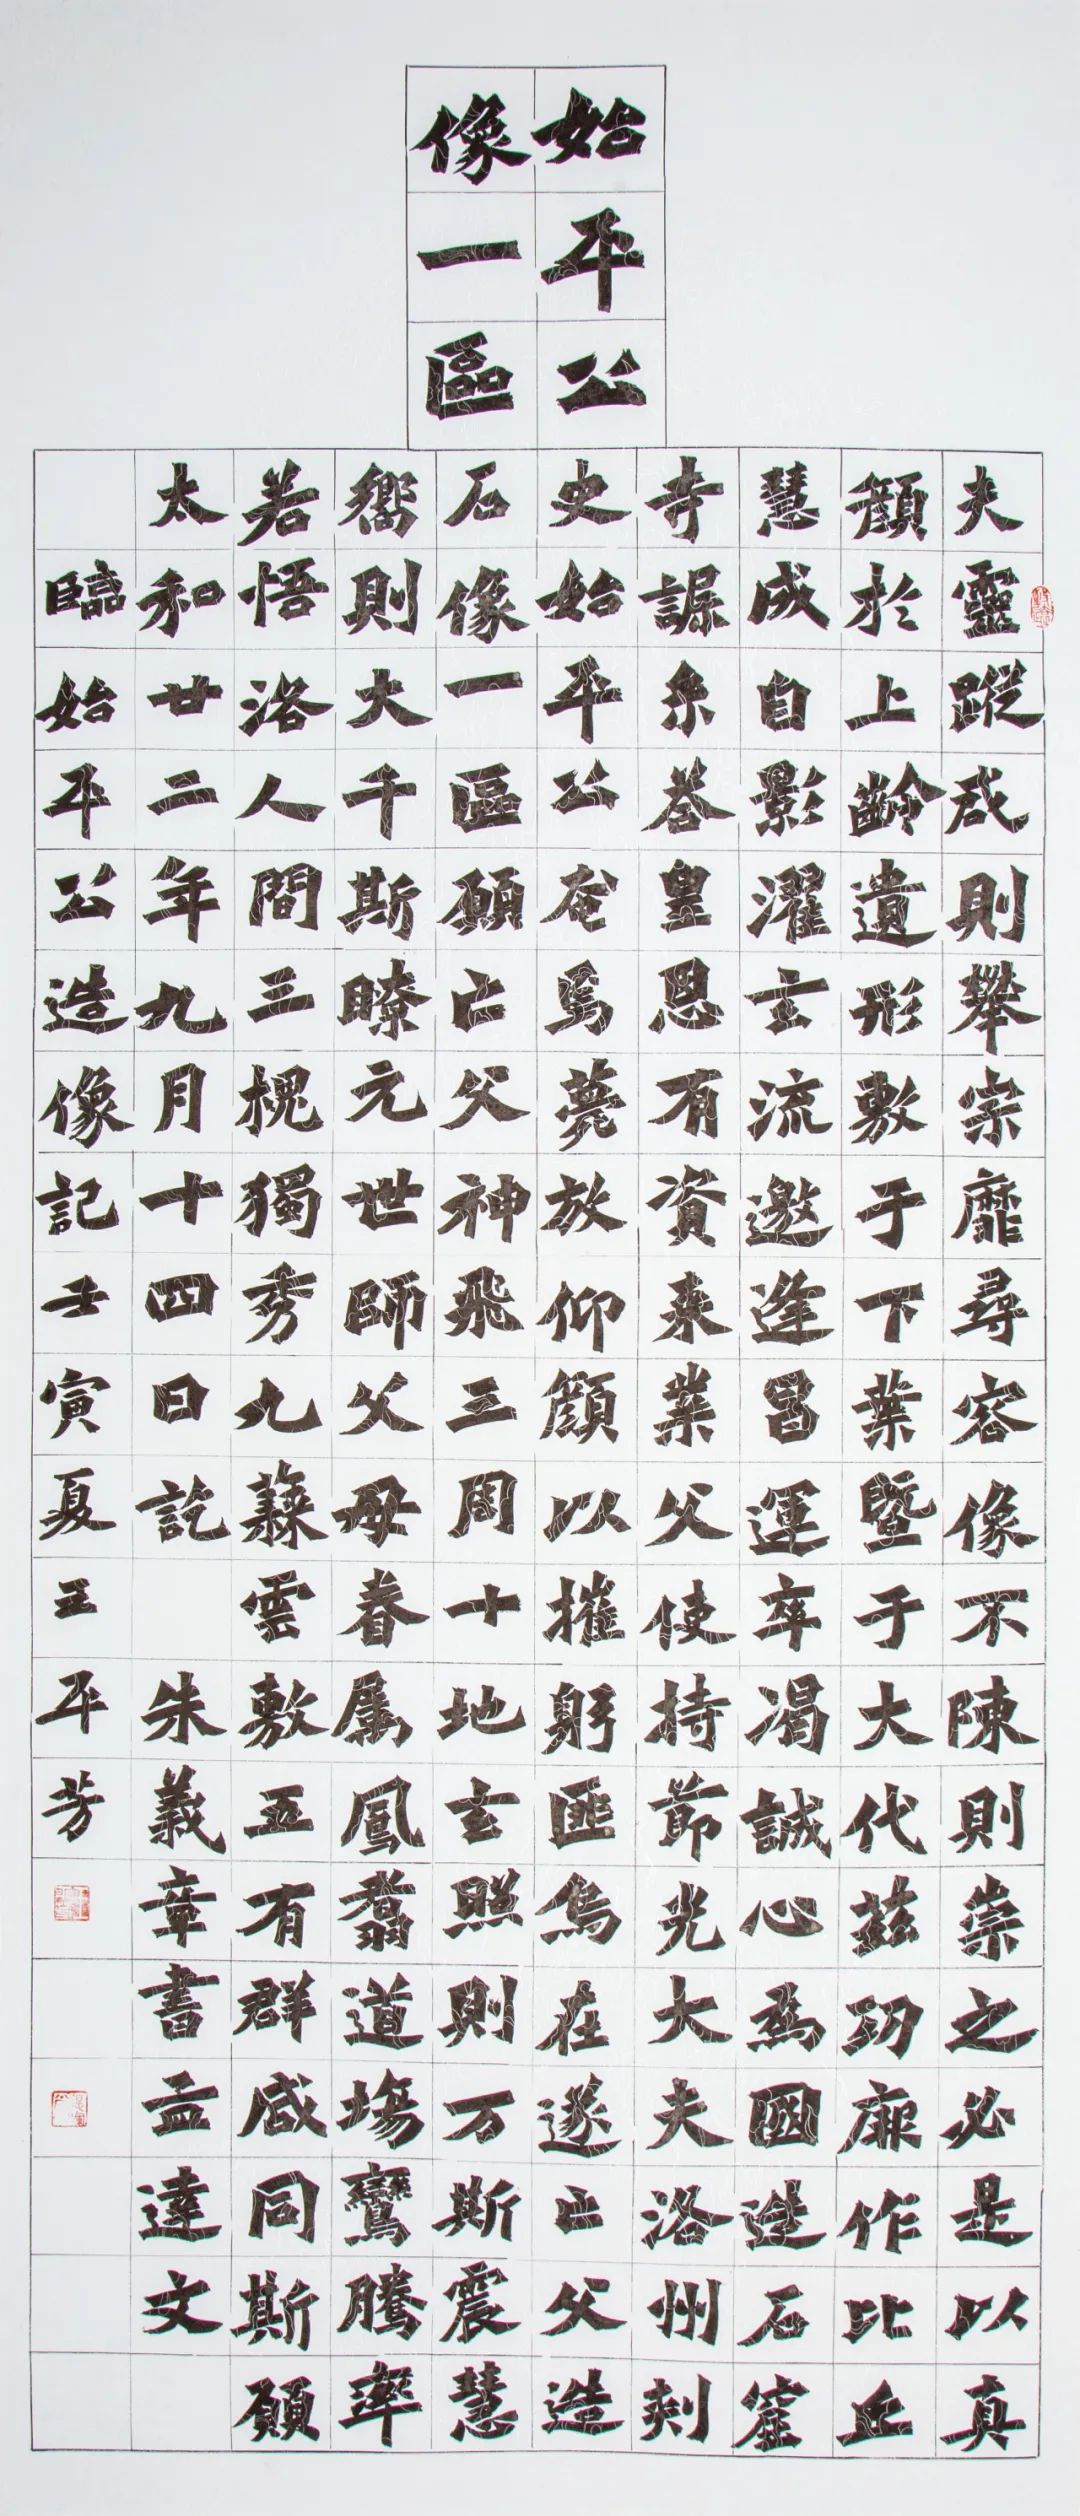 始平公
像一區
夫靈蹤咸則攀宗靡尋容像不陳則崇之必是以真
顏於上齡遺形敷于下葉暨于大代茲功厥作比丘
慧成自影濯玄流邀逢昌運率渴誠心為國造石窟
寺䛐糸荅皇恩有資來業父使持節光大夫洛州刾
史始平公奄焉薨放仰顏以摧躬匪烏在遂亡父造
石像一區願亡父神飛三周十地玄照則万斯震慧
嚮則大千斯瞭元世師父母眷屬鳳翥道場鸞騰率
若悟洛人間三槐獨秀九蕀雲敷五有群咸同斯願
太和廿二年九月十四日訖 朱義章書孟達文
臨始平公造像記壬寅夏王平芳